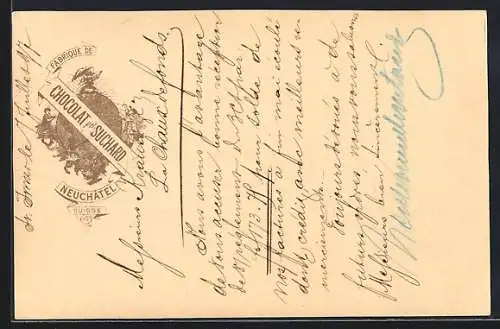 FABRIQUE DE
CHOCOLAT PH. SUCHARD
NEUCHÂTEL
SUISSE
Juillet 97
Messieurs
La Chaux de fonds
Nous avons l'avantage
de vous accuser bonne réception
de
173.75 pour solde de
nos factures à fin mai écoulé
dont crédit avec meilleurs re-
merciements.
Toujours dévoués à de
futurs ordres, nous vous saluons
Messieurs bien sincèrement.